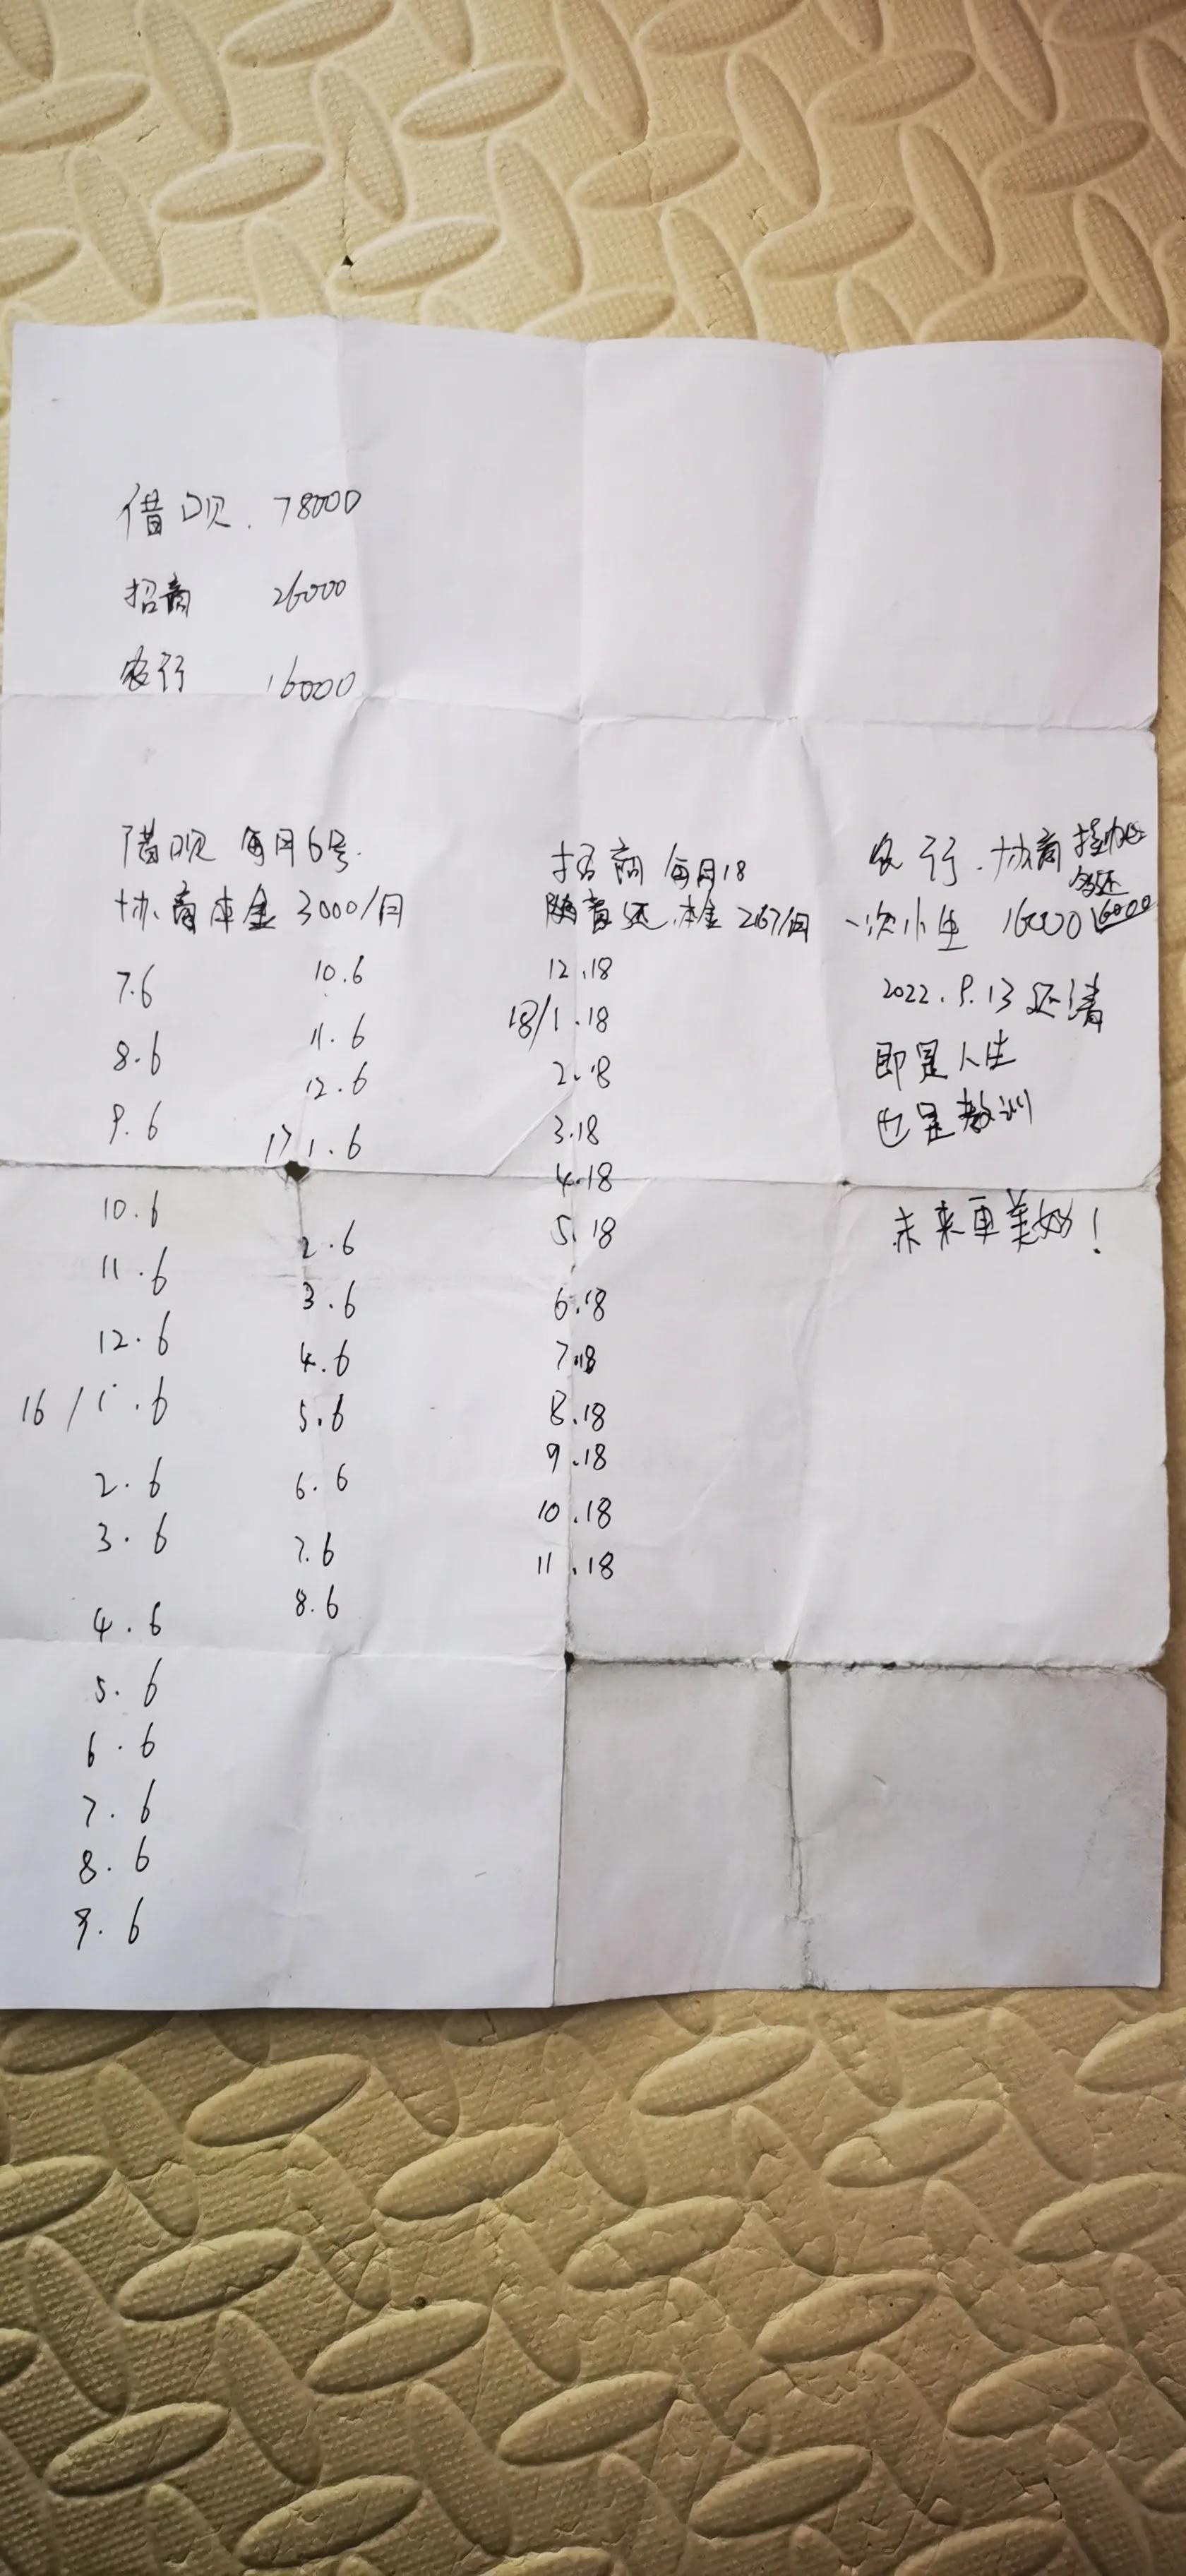 借呗. 78000
招商 26000
农行 16000
借呗 每月6号.
协商本金 3000/月
7.6
8.6
9.6
10.6
11.6
12.6
16/1.6
2.6
3.6
4.6
5.6
6.6
7.6
8.6
9.6
10.6
11.6
12.6
17 1.6
2.6
3.6
4.6
5.6
6.6
7.6
8.6
招商 每月18
随意还.本金 2167/月
12.18
18/1.18
2.18
3.18
4.18
5.18
6.18
7.18
8.18
9.18
10.18
11.18
农行.协商
一次 16000 16000
2022.9.13还清
即是人生
也是教训
未来更美好!